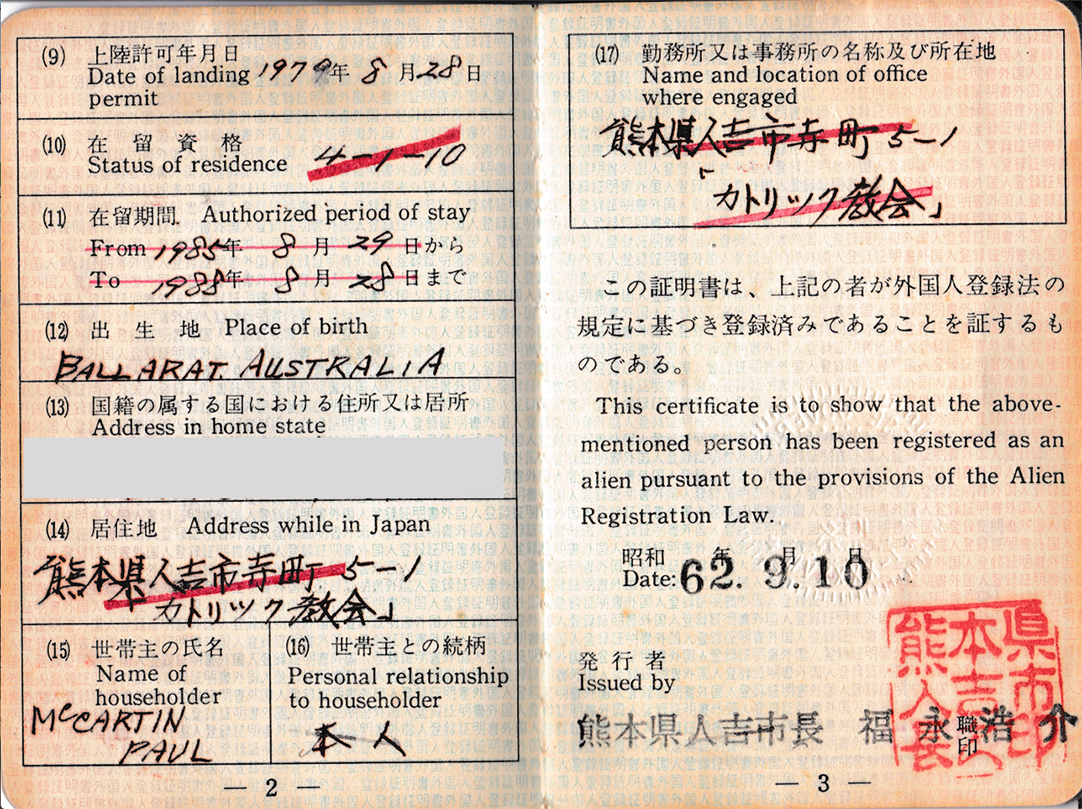 (9) 上陸許可年月日
Date of landing 1979年 8月28日
permit
(10) 在留資格
Status of residence 4-1-10
(11) 在留期間 Authorized period of stay
From 1985年 8月 29日から
To 1988年 8月 28日まで
(12) 出生地 Place of birth
BALLARAT. AUSTRALIA
(13) 国籍の属する国における住所又は居所
Address in home state
(14) 居住地 Address while in Japan
熊本県人吉市寺町5-1
「カトリック教会」
(15) 世帯主の氏名
Name of
householder
McCARTIN
PAUL
(16) 世帯主との続柄
Personal relationship
to householder
本人
— 2 —
(17) 勤務所又は事務所の名称及び所在地
Name and location of office
where engaged
熊本県人吉市寺町5-1
「カトリック教会」
この証明書は、上記の者が外国人登録法の
規定に基づき登録済みであることを証するも
のである。
This certificate is to show that the above-
mentioned person has been registered as an
alien pursuant to the provisions of the Alien
Registration Law.
昭和 年 月 日
Date: 62. 9. 10
発行者
Issued by
熊本県人吉市長 福永浩介
職印
— 3 —